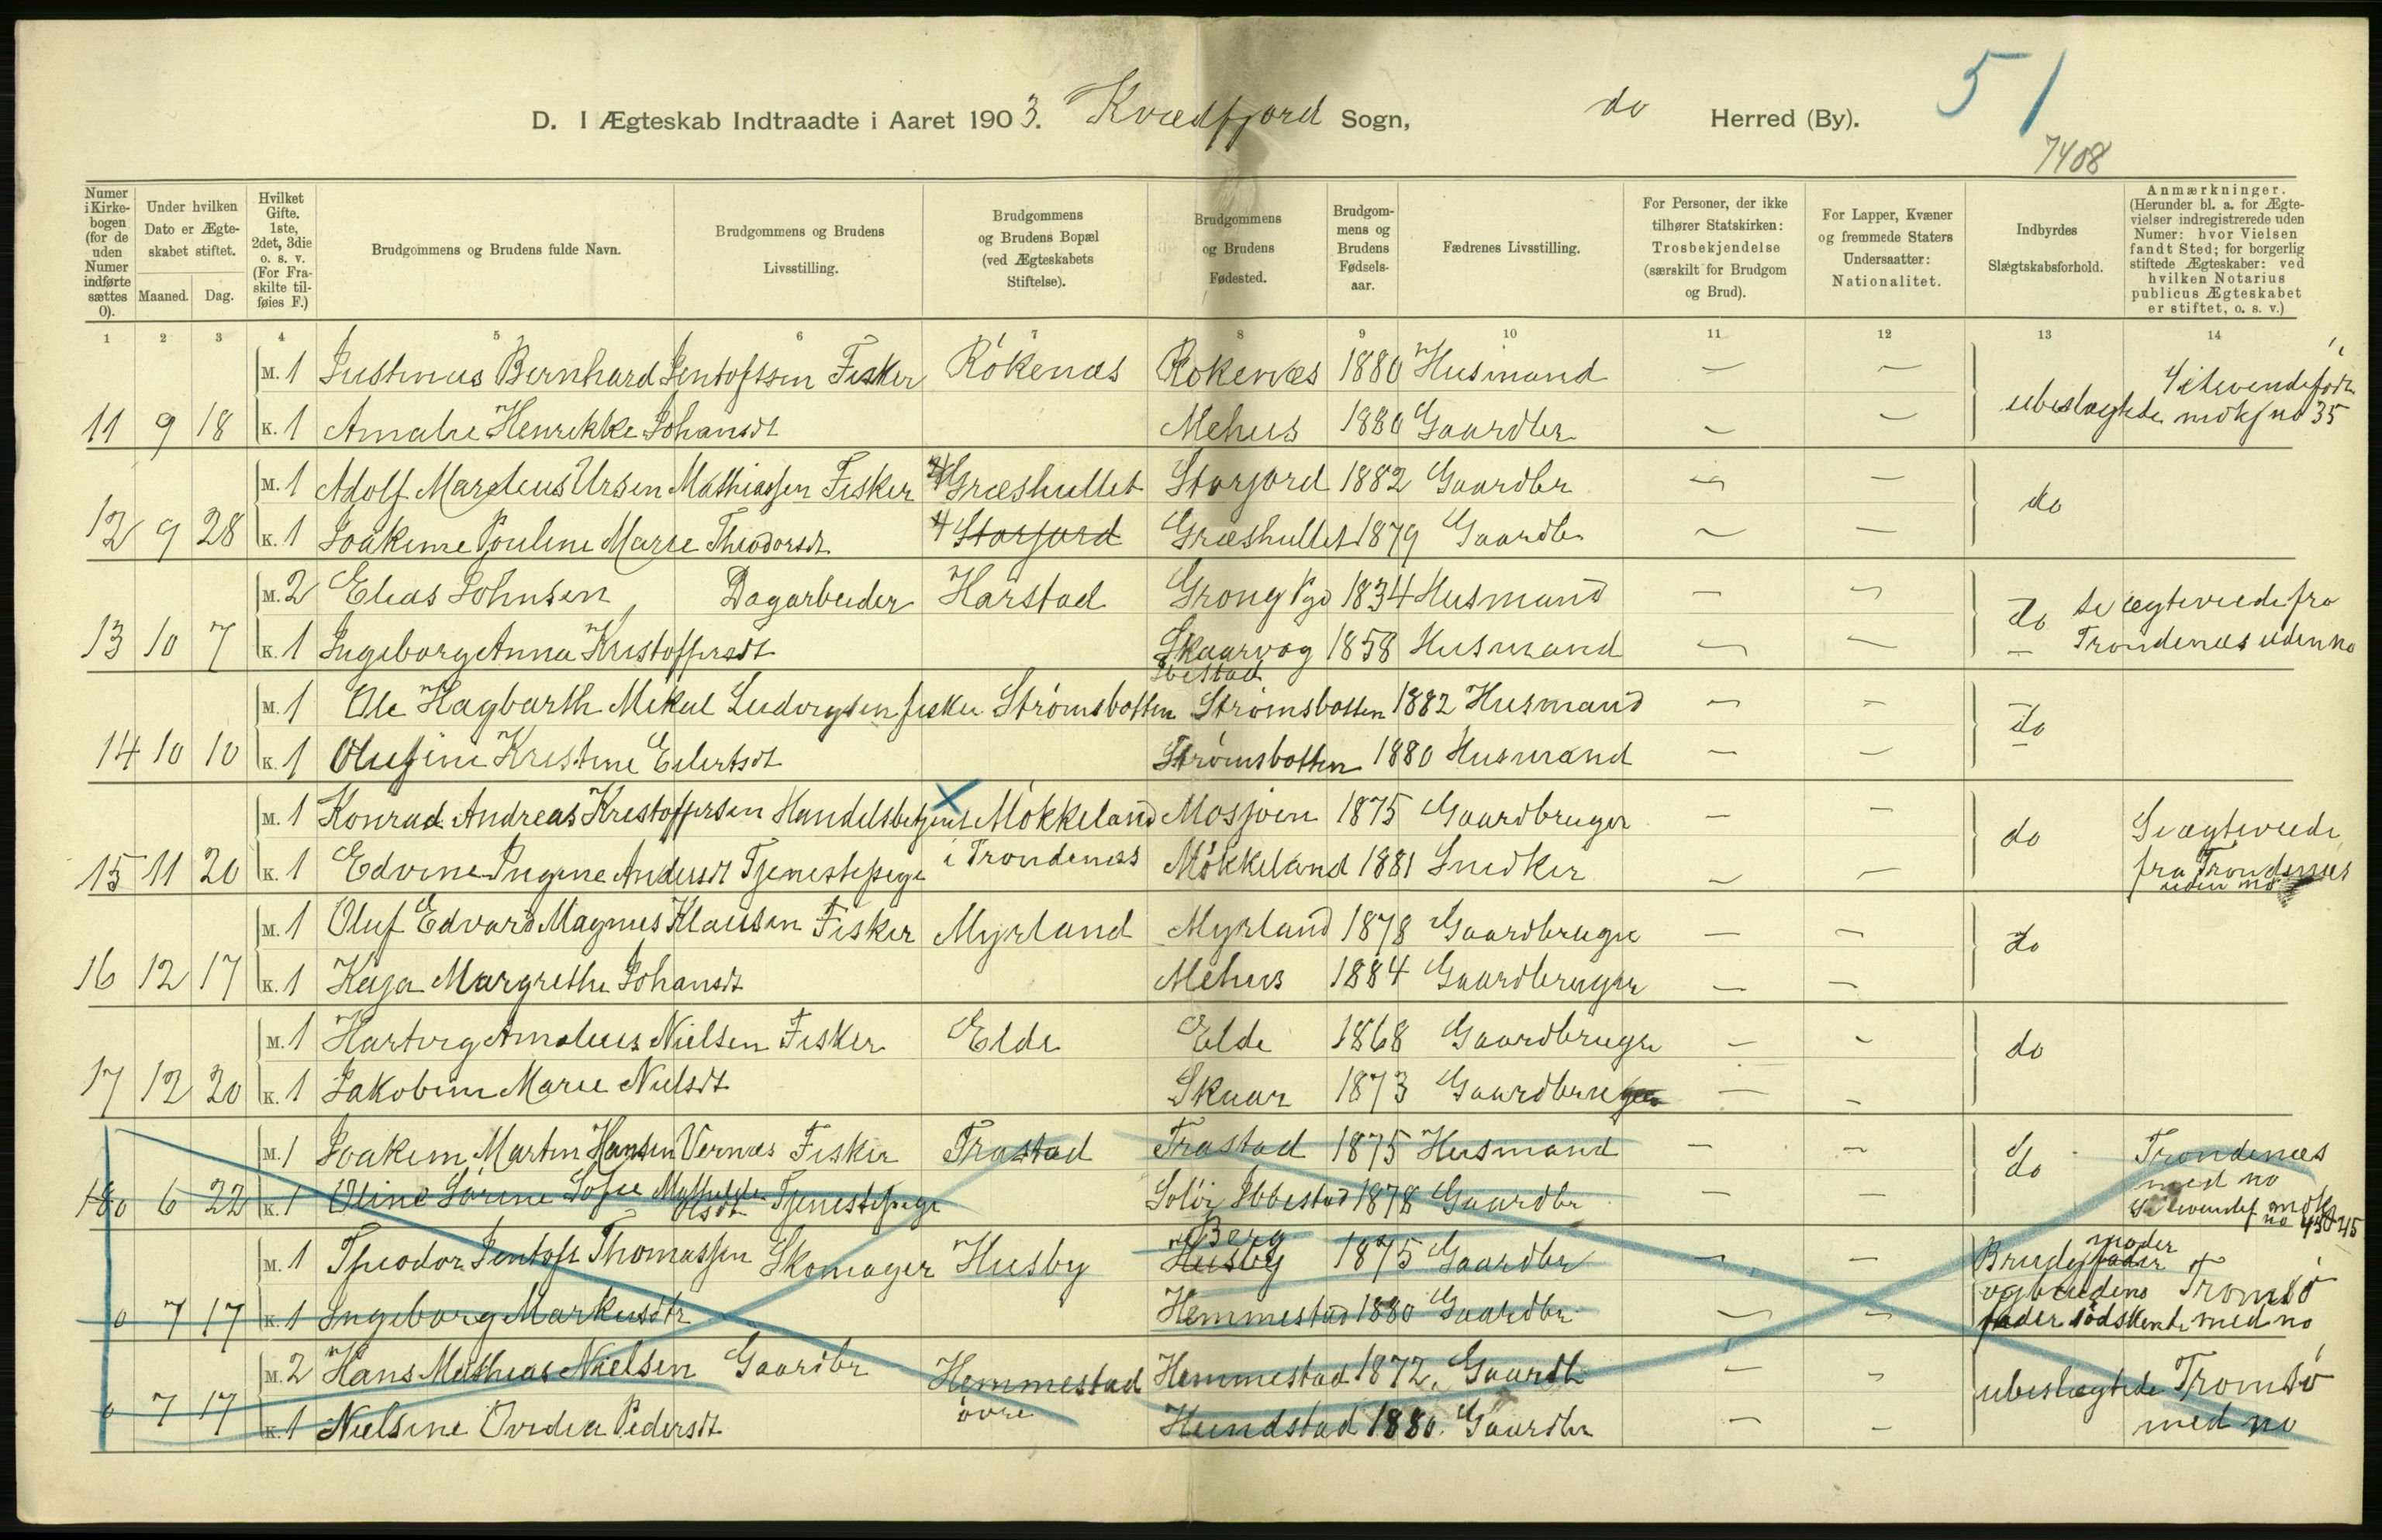 51
D. I Ægteskab Indtraadte i Aaret 1903. Kvædfjord Sogn, do Herred (By).
7408
Numer i Kirkebogen (for de uden Numer indførte sættes 0).
Under hvilken Dato er Ægteskabet stiftet.
Maaned. Dag.
Hvilket Gifte. 1ste, 2det, 3die o. s. v. (For Fraskilte tilføies F.)
Brudgommens og Brudens fulde Navn.
Brudgommens og Brudens Livsstilling.
Brudgommens og Brudens Bopæl (ved Ægteskabets Stiftelse).
Brudgommens og Brudens Fødested.
Brudgommens og Brudens Fødselsaar.
Fædrenes Livsstilling.
For Personer, der ikke tilhører Statskirken: Trosbekjendelse (særskilt for Brudgom og Brud).
For Lapper, Kvæner og fremmede Staters Undersaatter: Nationalitet.
Indbyrdes Slægtskabsforhold.
Anmærkninger. (Herunder bl. a. for Ægtevielser indregistrerede uden Numer: hvor Vielsen fandt Sted; for borgerlig stiftede Ægteskaber: ved hvilken Notarius publicus Ægteskabet er stiftet, o. s. v.)
1 2 3 4 5 6 7 8 9 10 11 12 13 14
M. 1 Justinus Bernhard Jentoftsen Fisker Rökenæs Rokenæs 1880 Husmand — —
11 9 18 K. 1 Amalie Henrikke Johansdt Mehus 1880 Gaardbr — — ubeslægtede no 35
M. 1 Adolf Ursin Mathiassen Fisker Græshullet Storjord 1882 Gaardbr — — do
12 9 28 K. 1 Joakime Pouline Marie Theodorsdt Storjord Græshullet 1879 Gaardbr — —
M. 2 Elias Johnsen Dagarbeider Harstad Grong Pgd 1834 Husmand — — do se ægteviede fra
13 10 7 K. 1 Ingeborg Anna Kristoffersdt Skaarvog Ibestad 1858 Husmand — — Trondenæs uden no
M. 1 Ole Hagbarth Mikal Ludvigsen fisker Strömsbotten Strömsbotten 1882 Husmand — — do
14 10 10 K. 1 Olufine Kristine Eilertsdt Strömsbotten 1880 Husmand — —
M. 1 Konrad Andreas Kristoffersen Handelsbetjent Mökkeland Mosjöen 1875 Gaardbruger — — do Se ægteviede
15 11 20 K. 1 Edvine Ingine Andersdt Tjenestepige i Trondenæs Mökkeland 1881 Snedker — — fra Trondenæs uden no
M. 1 Oluf Edvard Magnus Klausen Fisker Myrland Myrland 1878 Gaardbruger — — do
16 12 17 K. 1 Kaja Margrethe Johansdt Mehus 1884 Gaardbruger — —
M. 1 Hartvig Amoleus Nielsen Fisker Elde Elde 1868 Gaardbruger — — do
17 12 20 K. 1 Jakobine Marie Nielsdt Skaar 1873 Gaardbruger — —
M. 1 Joakim Martin Hansen Vernæs Fisker Trastad Trastad 1875 Husmand — — do Trondenæs med no
0 6 22 K. 1 Oline Sörine Sofie Mathilde Olsdt Tjenestepige Ibbestad 1878 Gaardbr — — no 45
M. 1 Theodor Jentoft Thomassen Skomager Husby Husby Berg 1875 Gaardbr — — Brudg fader moder
0 7 17 K. 1 Ingeborg Markusdtr Hemmestad 1880 Gaardbr — — og brudens fader sødskende Tromsö med no
M. 2 Hans Mathias Nielsen Gaardbr Hemmestad övre Hemmestad 1872 Gaardb — — ubeslægtede Tromsö
0 7 17 K. 1 Nielsine Ovidia Pedersdt Hundstad 1880 Gaardbr — — med no